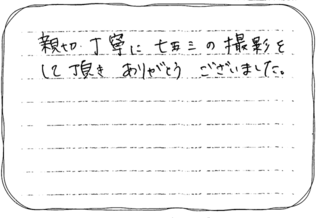 親切 丁寧に 七五三の撮影を
して頂き ありがとう ございました。